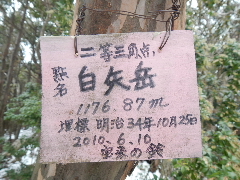 二等三角点
点名 白矢岳
1176.87m
埋標 明治34年10月25日
2010.6.10